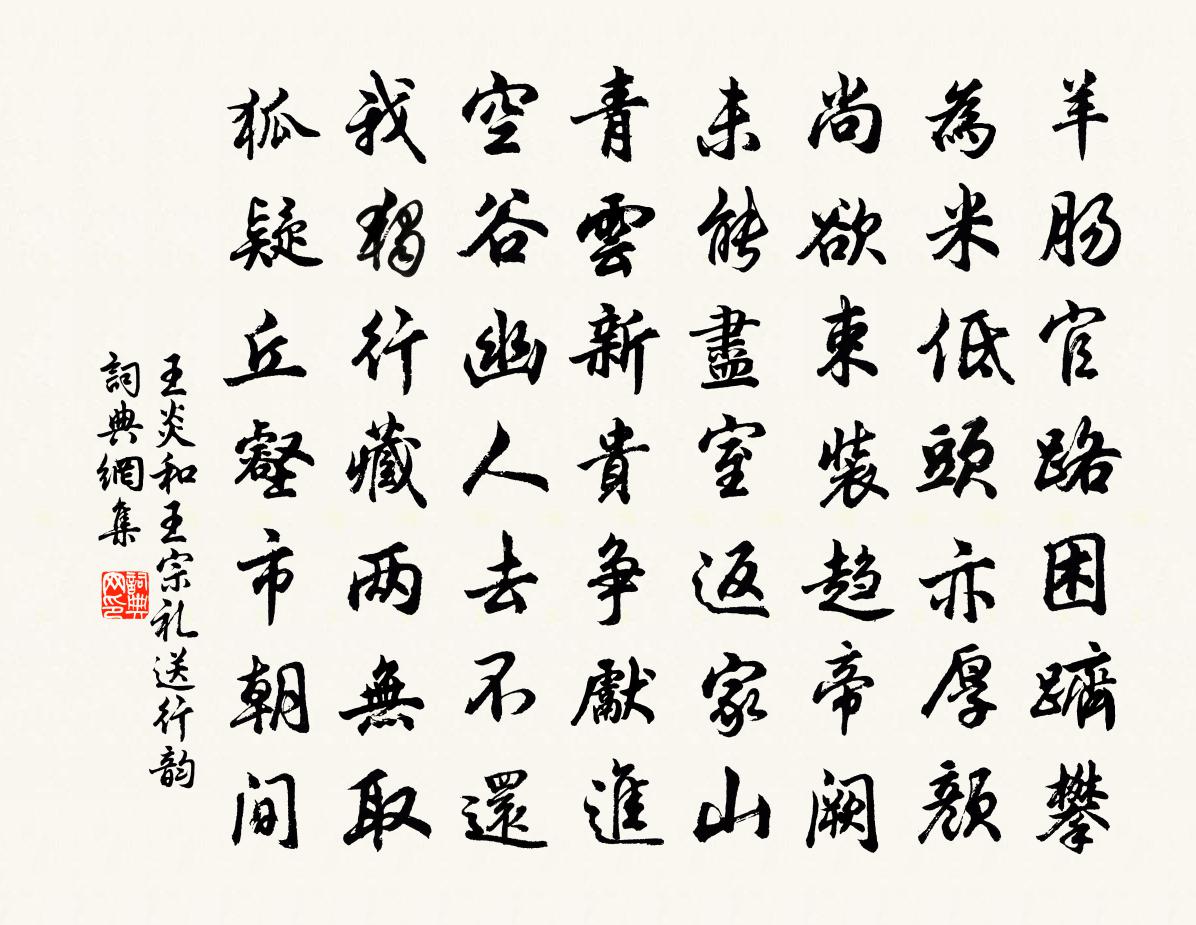 羊肠官路困躋攀
為米低頭亦厚顏
尚欲束裝趋帝阙
未能盡室返家山
青雲新貴争獻進
空谷幽人去不還
我獨行藏两無取
狐疑丘壑市朝间
王炎和王宗礼送行韵
詞典網集
詞典网印